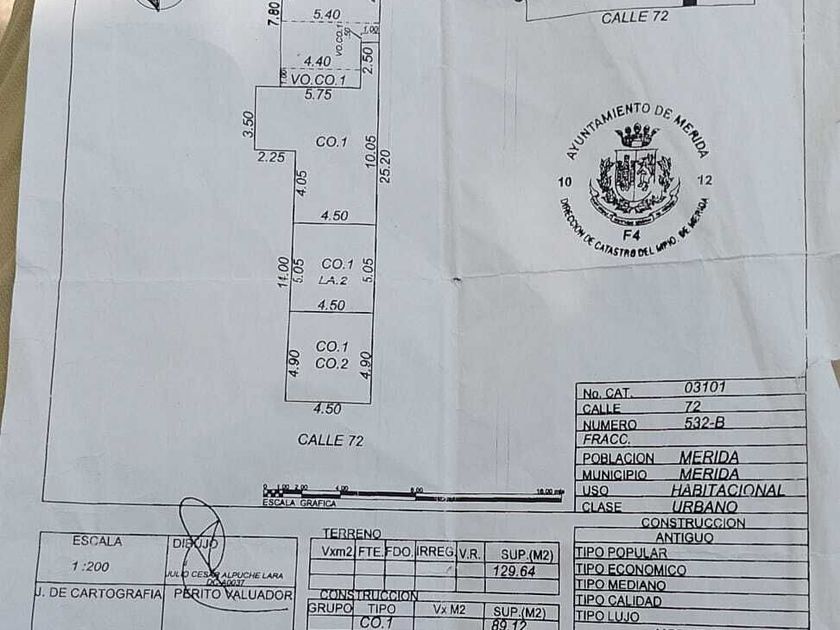 5.40
7.80
VO.CO.1
.50
1.00
4.40
2.50
VO.CO.1
5.75
3.50
CO.1
2.25
10.05
25.20
4.05
4.50
CO.1
LA.2
11.00
5.05
5.05
4.50
CO.1
CO.2
4.90
4.90
4.50
CALLE 72
CALLE 72
AYUNTAMIENTO DE MERIDA
10
12
F4
DIRECCION DE CATASTRO DEL MPIO. DE MERIDA
0 1.00 2.00 4.00
ESCALA GRAFICA
No. CAT. 03101
CALLE 72
NUMERO 532-B
FRACC.
POBLACION MERIDA
MUNICIPIO MERIDA
USO HABITACIONAL
CLASE URBANO
CONSTRUCCION
ANTIGUO
TIPO POPULAR
TIPO ECONOMICO
TIPO MEDIANO
TIPO CALIDAD
TIPO LUJO
ESCALA
1 :200
DIBUJO
JULIO CESAR ALPUCHE LARA
J. DE CARTOGRAFIA
PERITO VALUADOR
TERRENO
Vxm2 FTE. FDO. IRREG. V.R. SUP.(M2)
129.64
CONSTRUCCION
GRUPO TIPO Vx M2 SUP.(M2)
CO.1 89.12